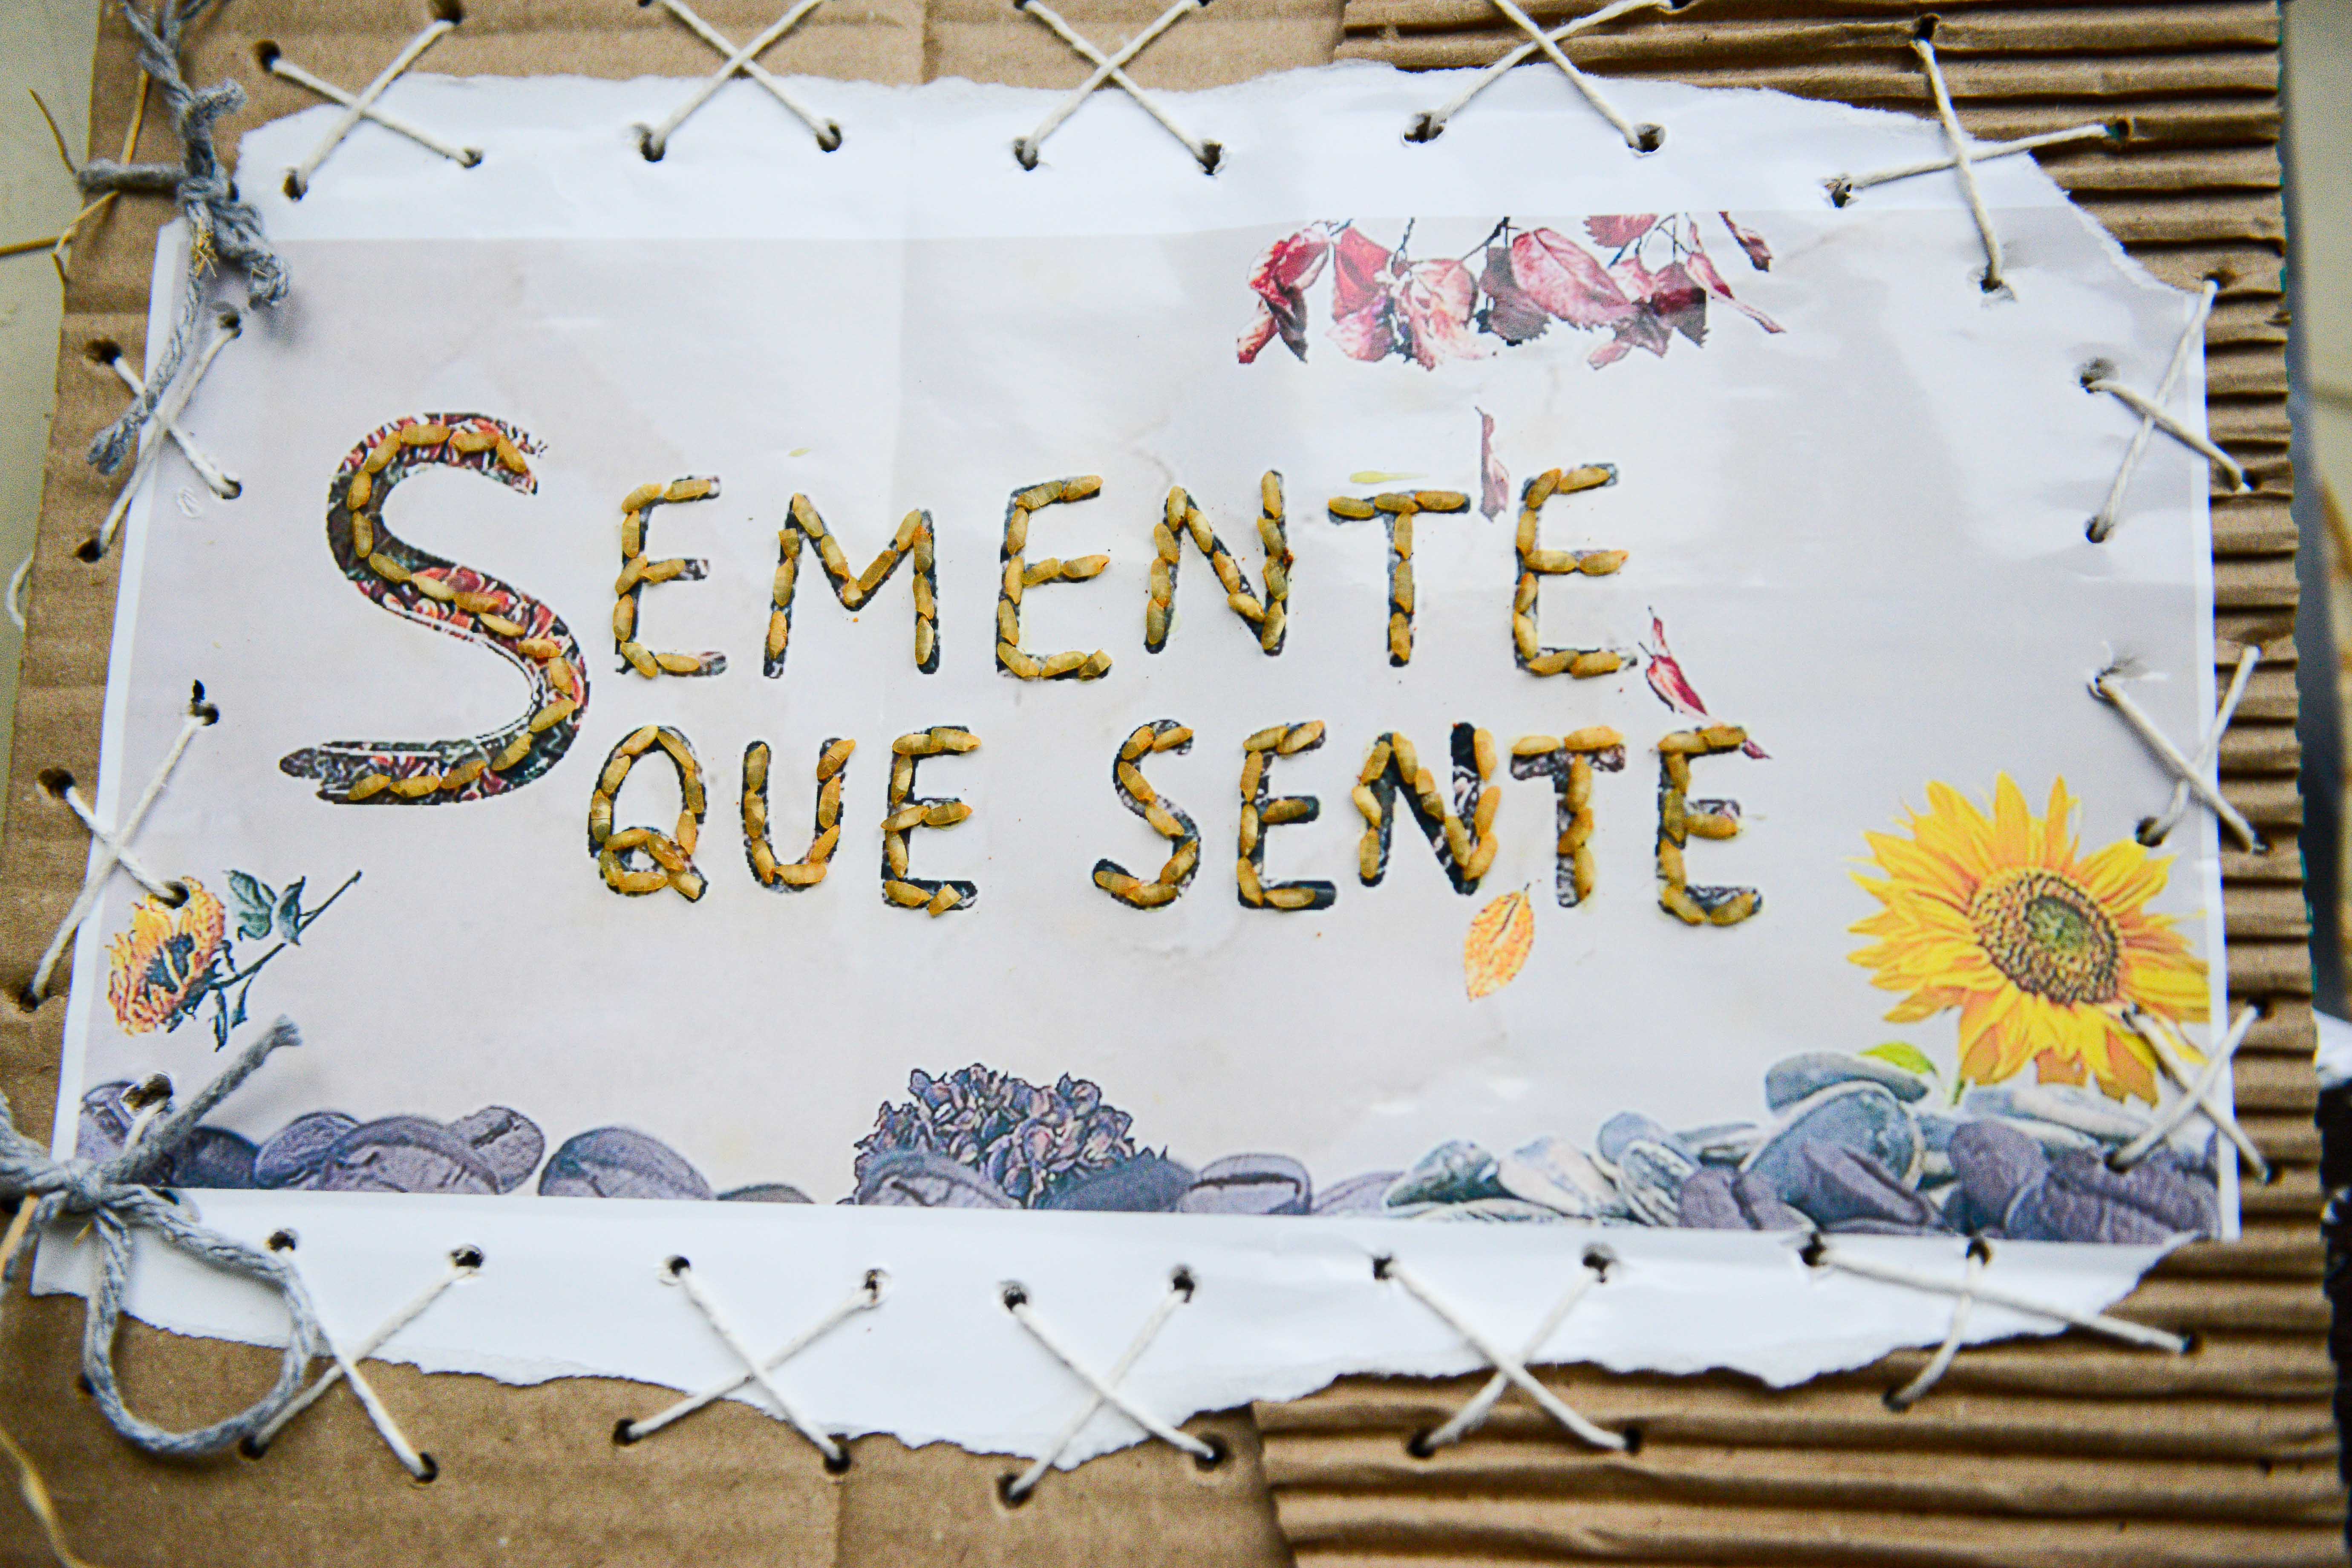 SEMENTE
QUE SENTE